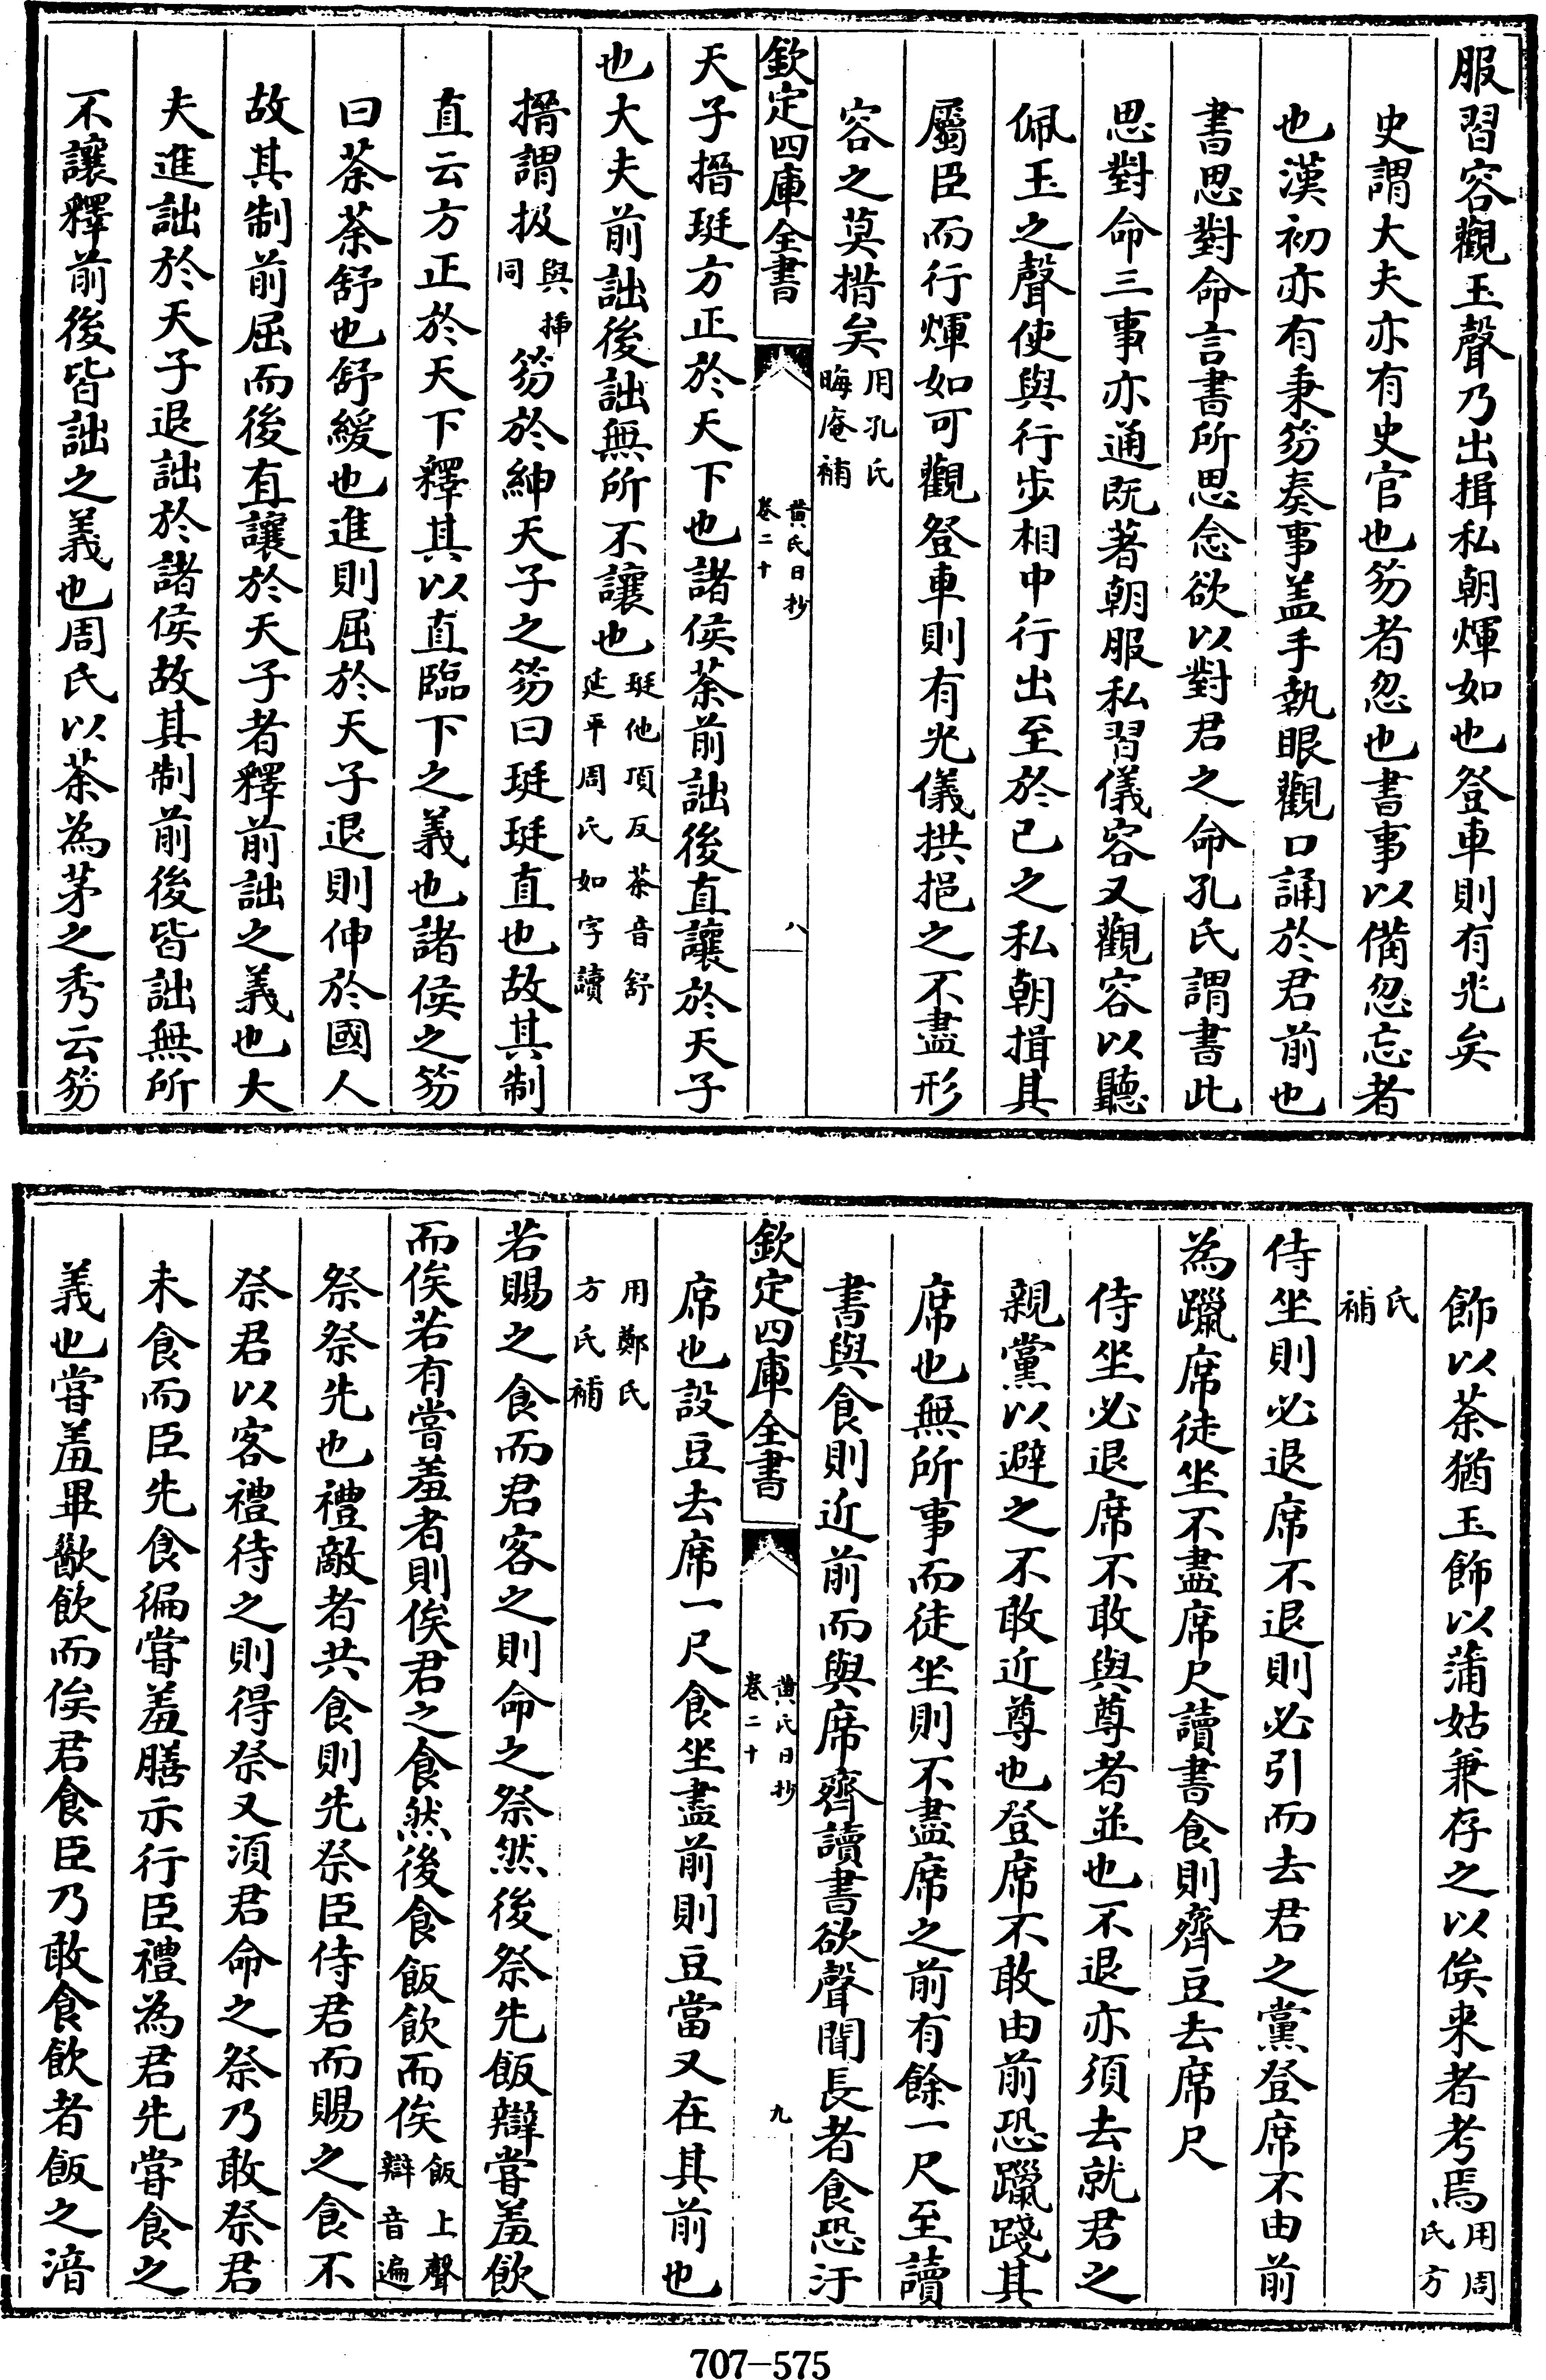 服習容觀玉聲乃出揖私朝煇如也登車則有光矣
史謂大夫亦有史官也笏者忽也書事以備忽忘者
也漢初亦有秉笏奏事盖手執眼觀口誦於君前也
書思對命言書所思念欲以對君之命孔氏謂書此
思對命三事亦通既著朝服私習儀容又觀容以聽
佩玉之聲使與行步相中行出至於已之私朝揖其
屬臣而行煇如可觀登車則有光儀拱挹之不盡形
容之莫措矣用孔氏晦庵補
欽定四庫全書
黄氏日抄
卷二十
八
天子搢珽方正於天下也諸侯荼前詘後直讓於天子
也大夫前詘後詘無所不讓也珽他頂反荼音舒延平周氏如字讀
搢謂扱與揷同笏於紳天子之笏曰珽珽直也故其制
直云方正於天下釋其以直臨下之義也諸侯之笏
曰荼荼舒也舒緩也進則屈於天子退則伸於國人
故其制前屈而後直讓於天子者釋前詘之義也大
夫進詘於天子退詘於諸侯故其制前後皆詘無所
不讓釋前後皆詘之義也周氏以荼為茅之秀云笏
飾以荼猶玉飾以蒲姑兼存之以俟来者考焉用周氏方
氏補
侍坐則必退席不退則必引而去君之黨登席不由前
為躐席徒坐不盡席尺讀書食則齊豆去席尺
侍坐必退席不敢與尊者並也不退亦須去就君之
親黨以避之不敢近尊也登席不敢由前恐躐踐其
席也無所事而徒坐則不盡席之前有餘一尺至讀
書與食則近前而與席齊讀書欲聲聞長者食恐汙
欽定四庫全書
黄氏日抄
卷二十
九
席也設豆去席一尺食坐盡前則豆當又在其前也
用鄭氏方氏補
若賜之食而君客之則命之祭然後祭先飯辯嘗羞飲
而俟若有嘗羞者則俟君之食然後食飯飲而俟飯上聲辯音遍
祭祭先也禮敵者共食則先祭臣侍君而賜之食不
祭君以客禮待之則得祭又須君命之祭乃敢祭君
未食而臣先食徧甞羞膳示行臣禮為君先甞食之
義也甞羞畢歠飲而俟君食臣乃敢食飲者飯之湆
707-575